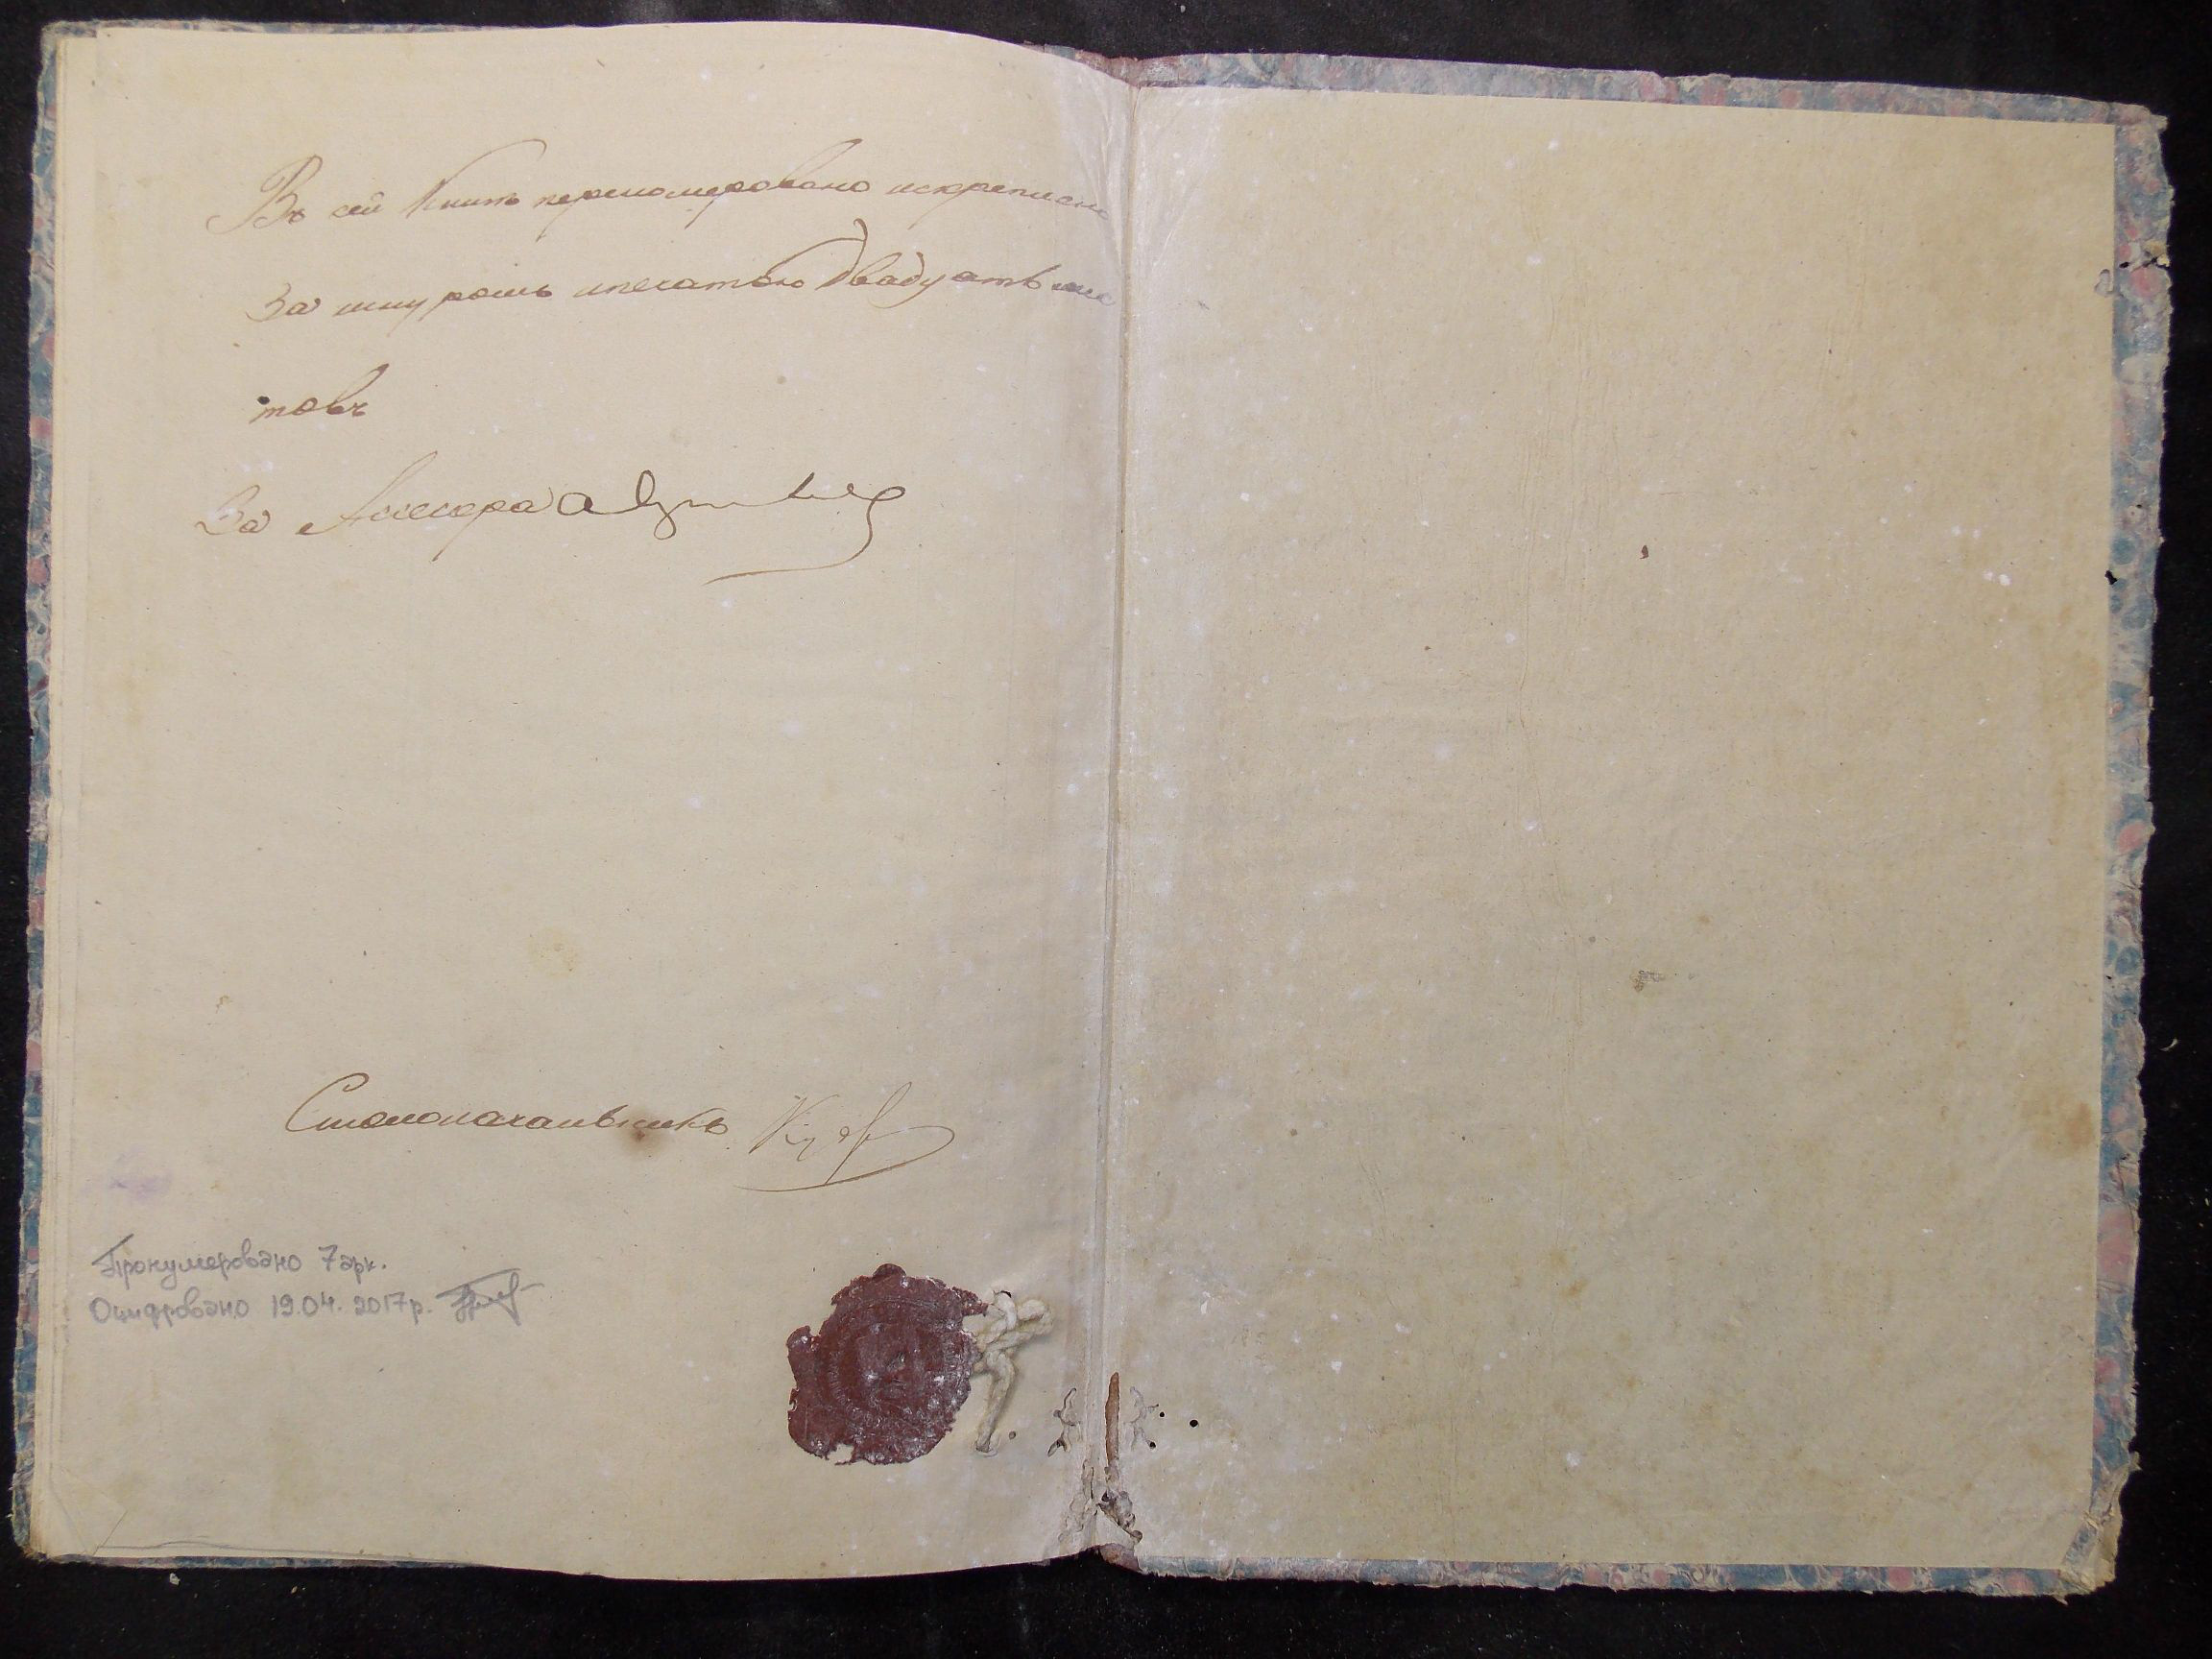 Въ сей Книгѣ перенумеровано искреплено
За шнуромъ ипечатью двадцать лис
товъ
За Ассесора
Столоначальникъ
Пронумеровано 7 арк.
Оцифровано 19.04.2017р.